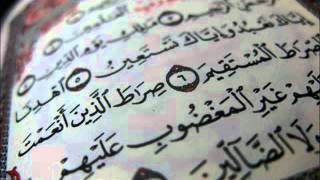 الرَّحِيمِ مَالِكِ يَوْمِ الدِّينِ
إِيَّاكَ نَعْبُدُ وَإِيَّاكَ نَسْتَعِينُ ٥ اهْدِنَا
الصِّرَاطَ الْمُسْتَقِيمَ ٦ صِرَاطَ الَّذِينَ أَنْعَمْتَ
عَلَيْهِمْ غَيْرِ الْمَغْضُوبِ عَلَيْهِمْ
وَلَا الضَّالِّينَ